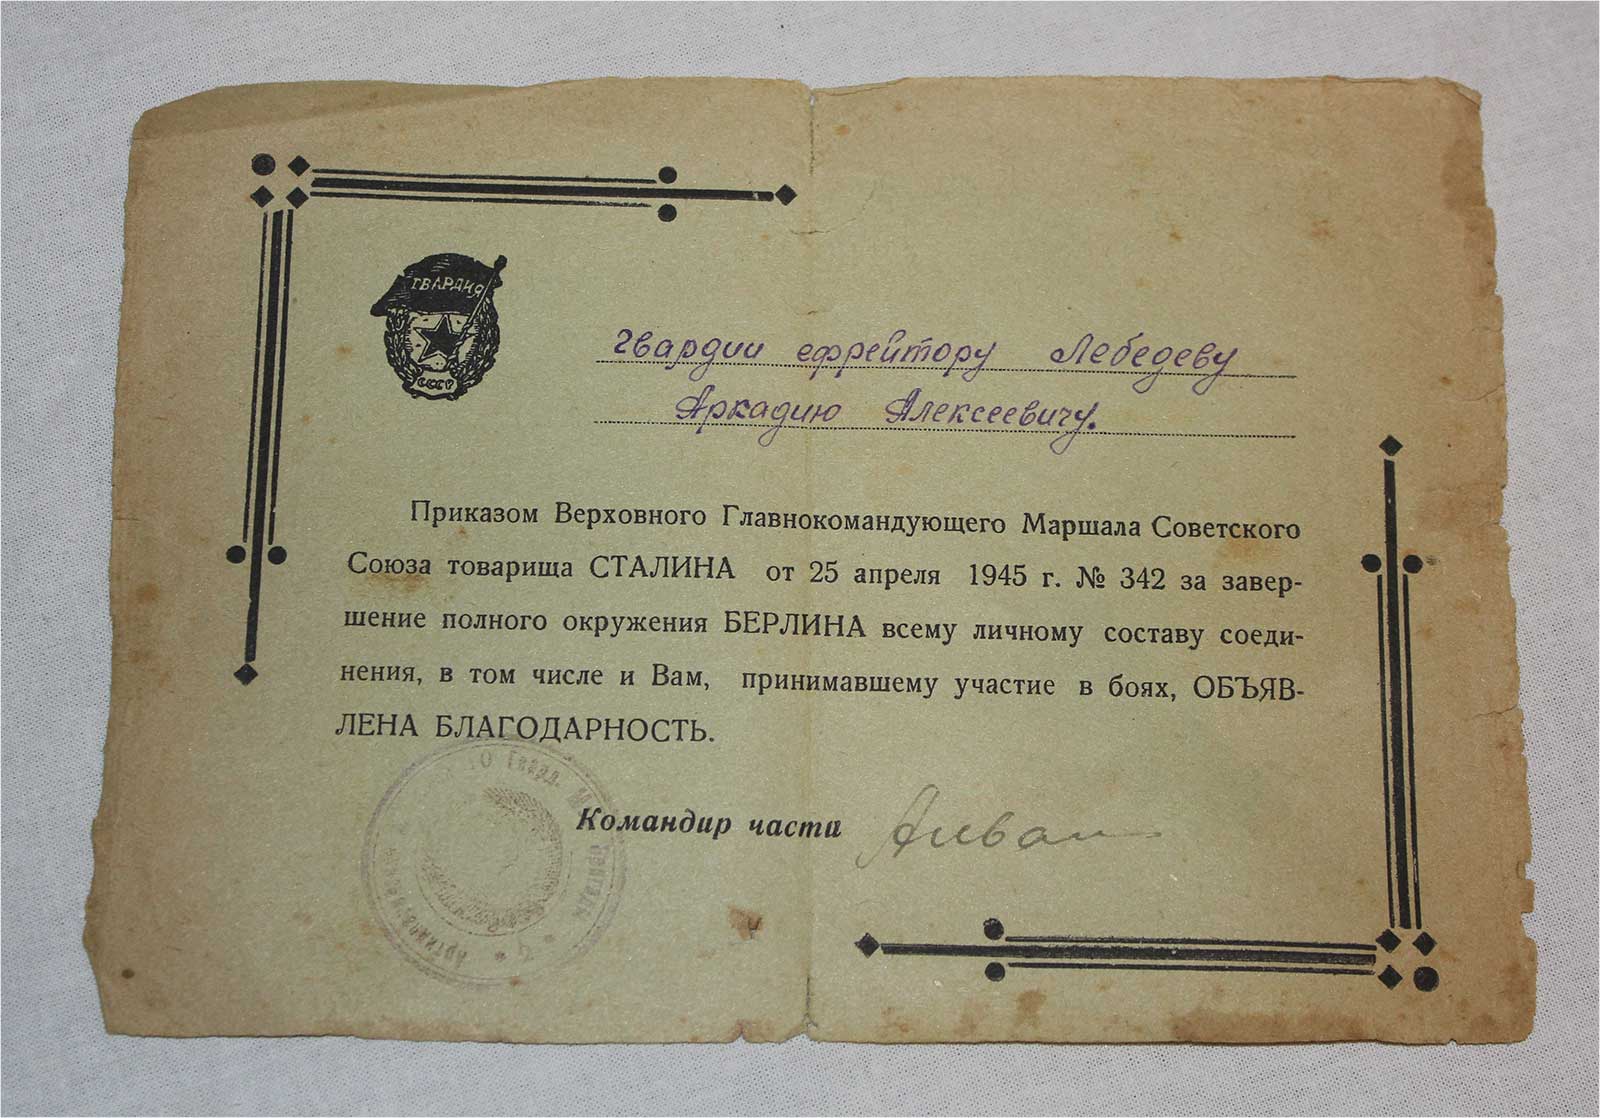 ГВАРДИЯ
СССР
Гвардии ефрейтору Лебедеву
Аркадию Алексеевичу.
Приказом Верховного Главнокомандующего Маршала Советского
Союза товарища СТАЛИНА от 25 апреля 1945 г. № 342 за завер-
шение полного окружения БЕРЛИНА всему личному составу соеди-
нения, в том числе и Вам, принимавшему участие в боях, ОБЪЯВ-
ЛЕНА БЛАГОДАРНОСТЬ.
Командир части
Гвард.